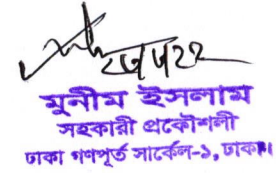 মুনীম ইসলাম
সহকারী প্রকৌশলী
ঢাকা গণপূর্ত সার্কেল-১, ঢাকা।